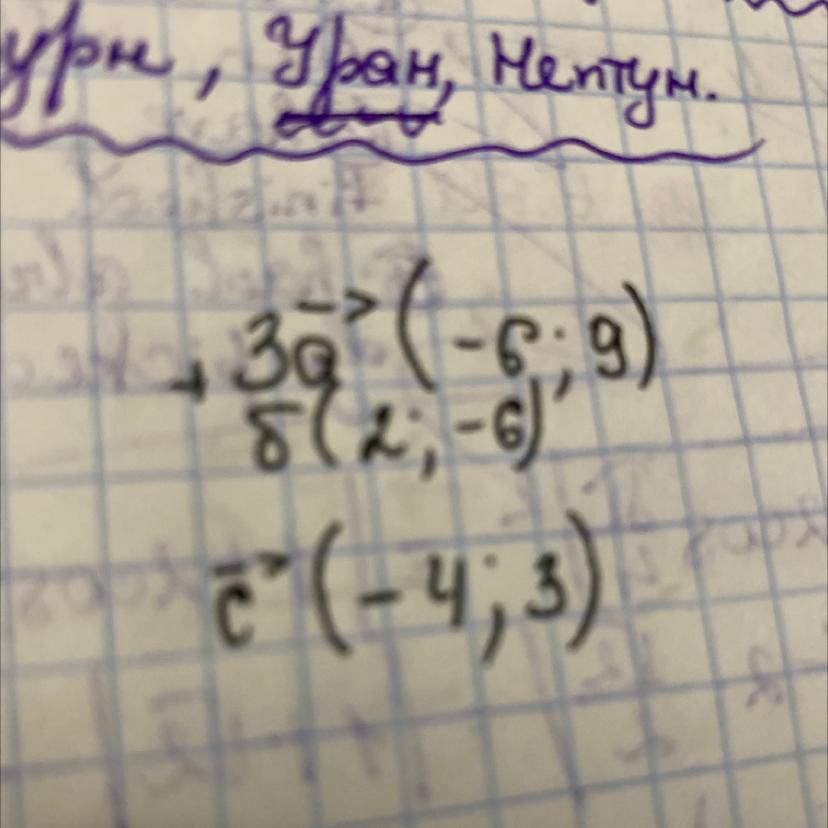 урн, Уран, Нептун.
+ 3a⃗ (-6; 9)
b̅(2; -6)
c⃗ (-4; 3)